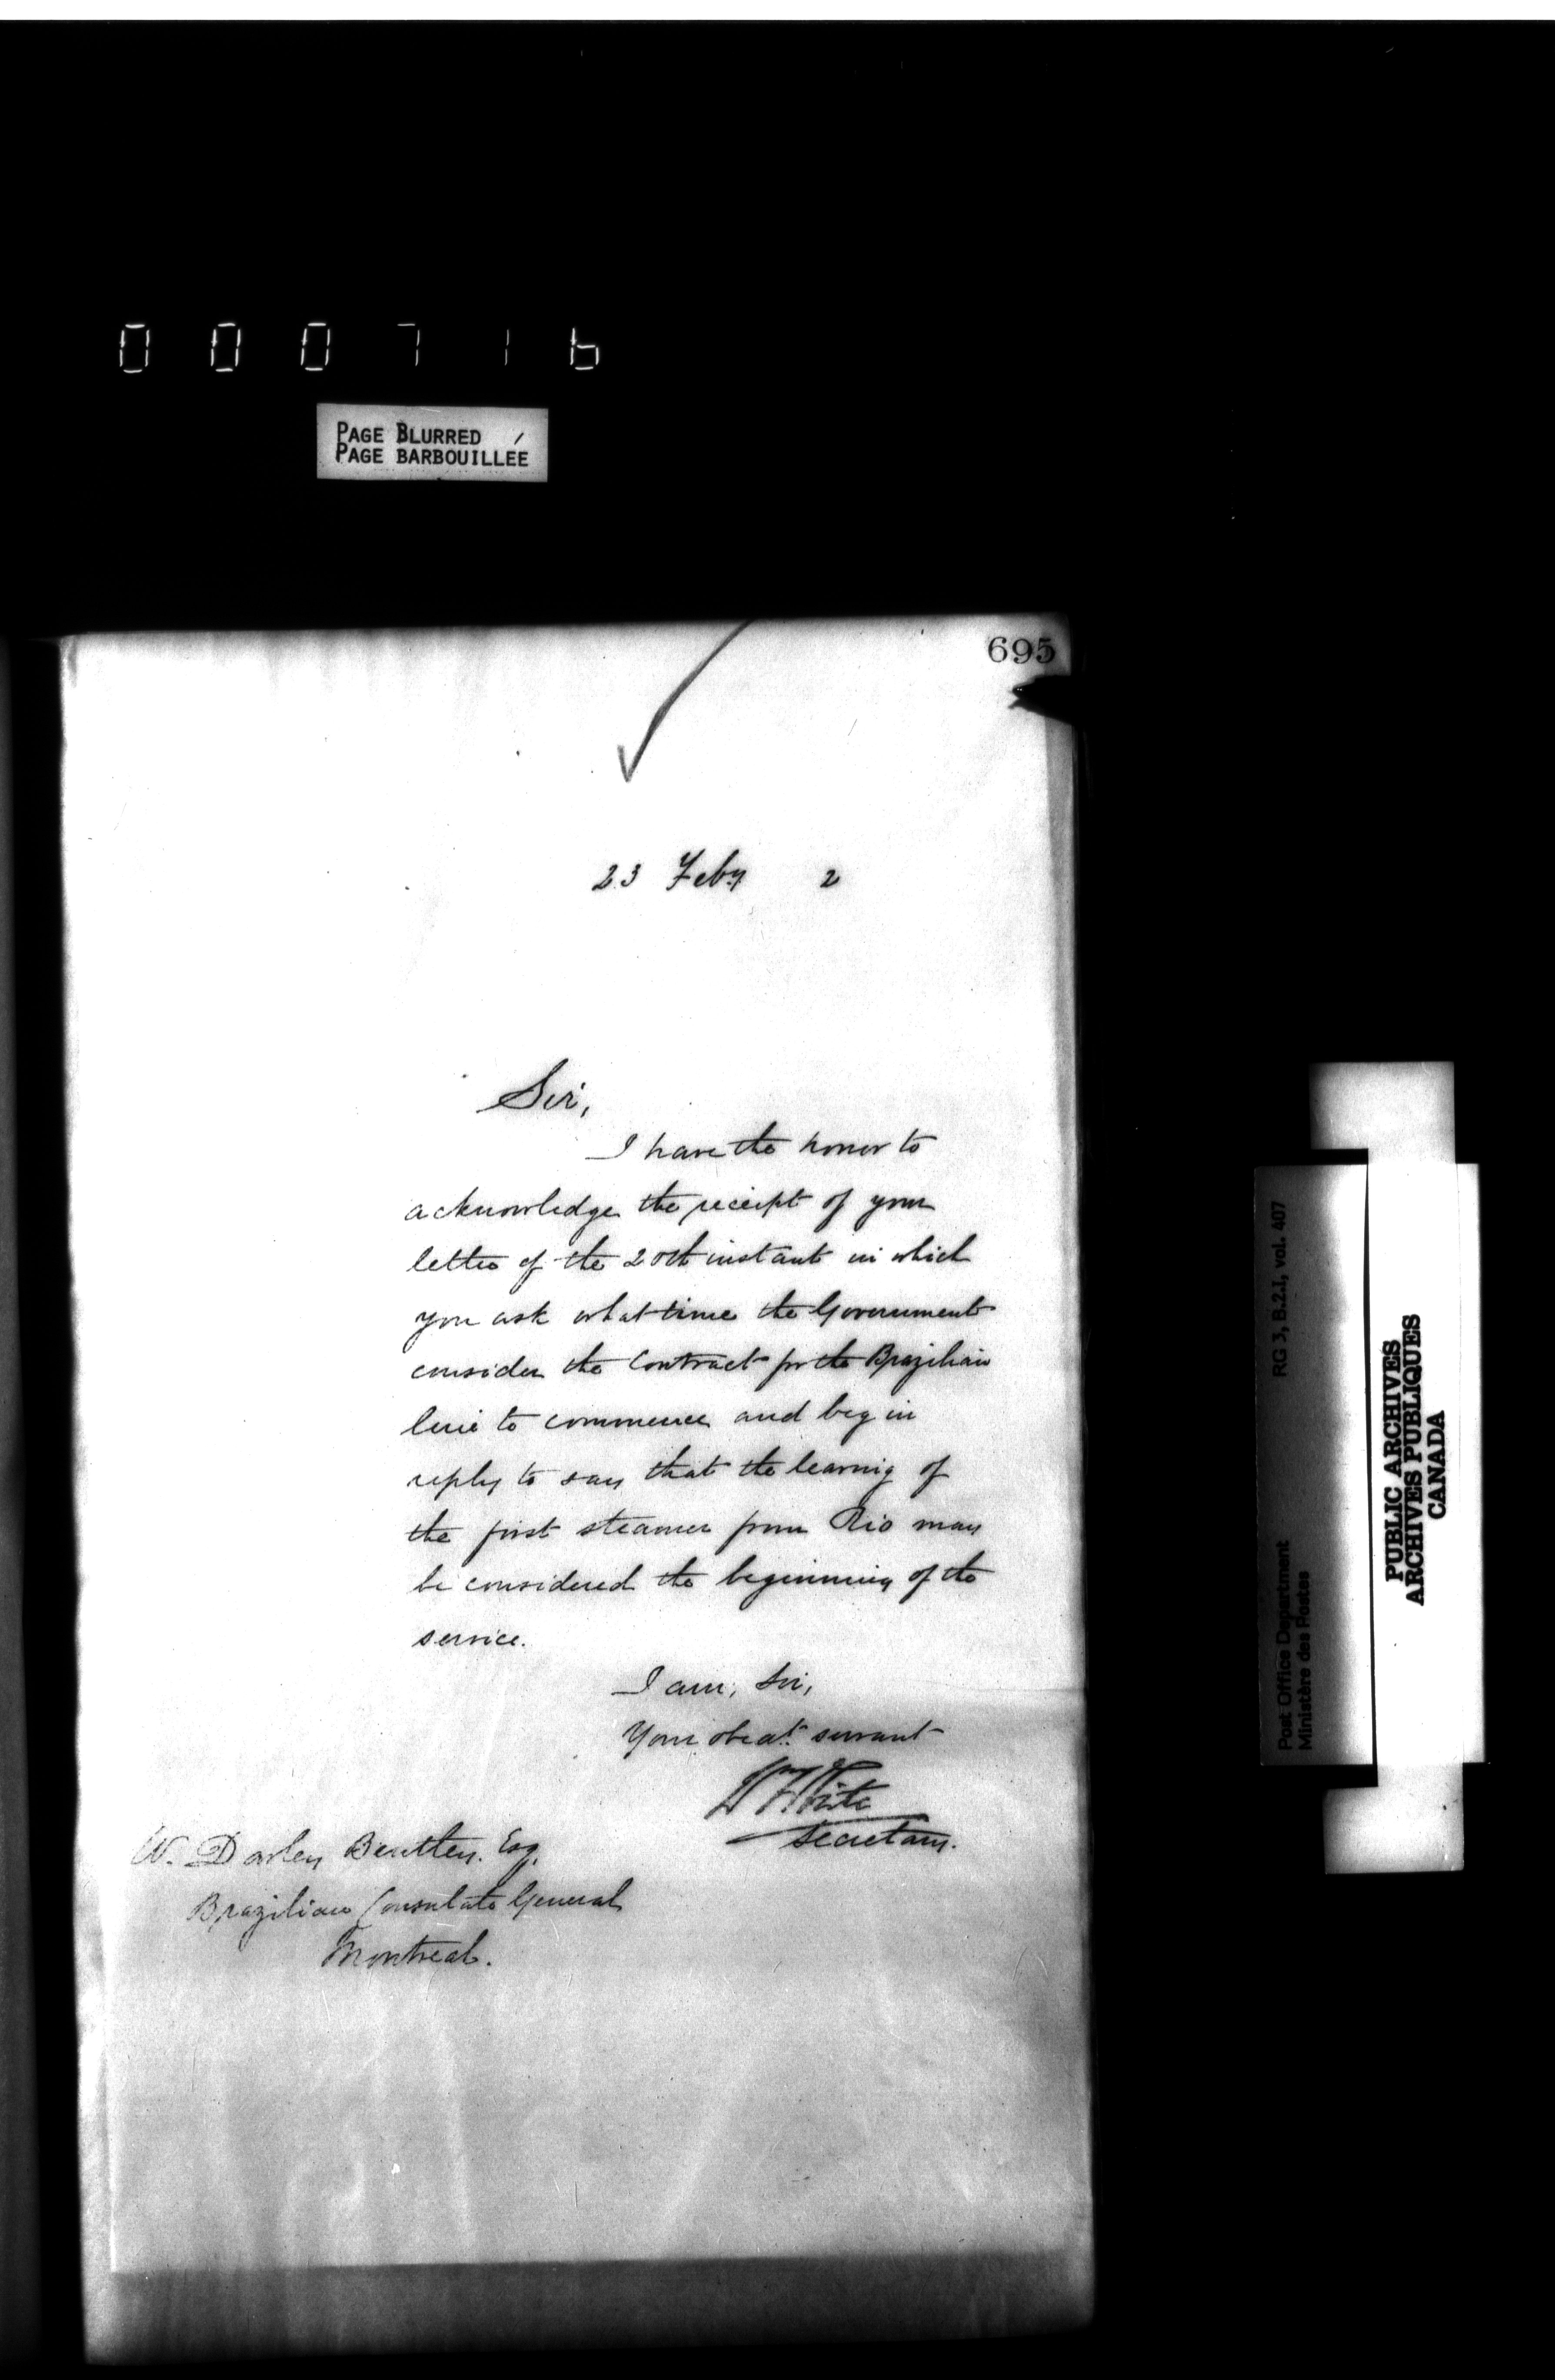 000716
PAGE BLURRED
PAGE BARBOUILLÉE
695
23 Feby 2
Sir,
I have the honor to
acknowledge the receipt of your
letter of the 20th instant in which
you ask what time the Government
consider the Contract for the Brazilian
line to commence and beg in
reply to say that the leaving of
the first steamer from Rio may
be considered the beginning of the
service.
I am, Sir,
Your obedt. servant
W White
Secretary.
W. Darley Bentley. Esq.
Brazilian Consulate General
Montreal.
RG 3, B.2.1, vol. 407
Post Office Department
Ministère des Postes
PUBLIC ARCHIVES
ARCHIVES PUBLIQUES
CANADA